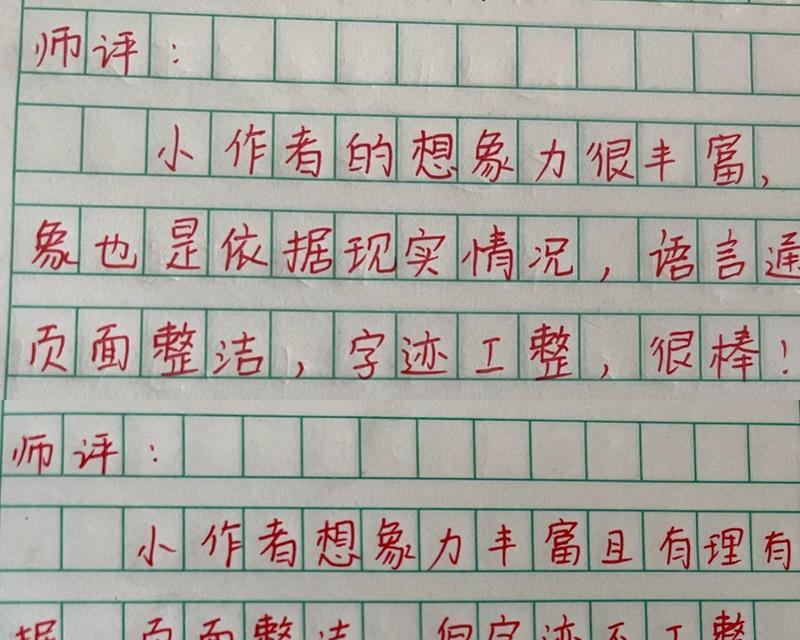 师评：
小作者的想象力很丰富，
象也是依据现实情况，语言通
页面整洁，字迹工整，很棒！
师评：
小作者想象力丰富且有理有
据 页面整洁 但字迹不工整